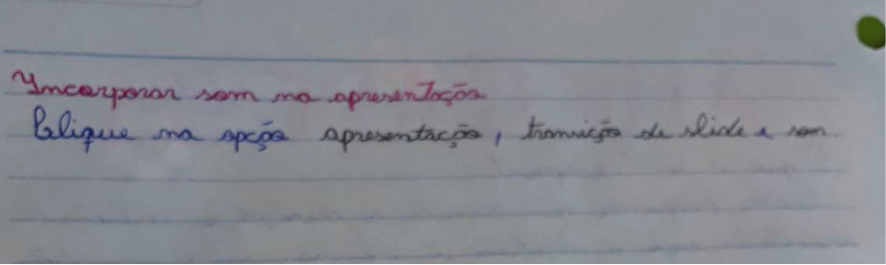 Incorporar som na apresentação
Clique na opção apresentação, transição de slide e som